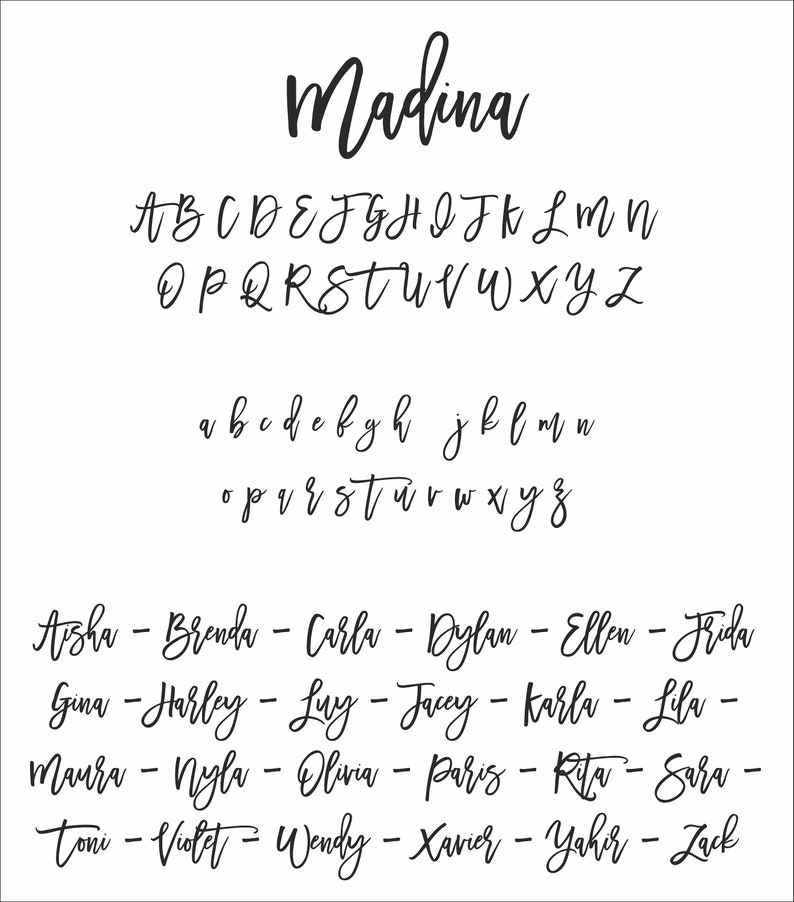 Madina
A B C D E F G H I J K L M N
O P Q R S T U V W X Y Z
a b c d e f g h j k l m n
o p q r s t u v w x y z
Aisha - Brenda - Carla - Dylan - Ellen - Frida
Gina - Harley - Luy - Jacey - Karla - Lila -
Maura - Nyla - Olivia - Paris - Rita - Sara -
Toni - Violet - Wendy - Xavier - Yahir - Zack